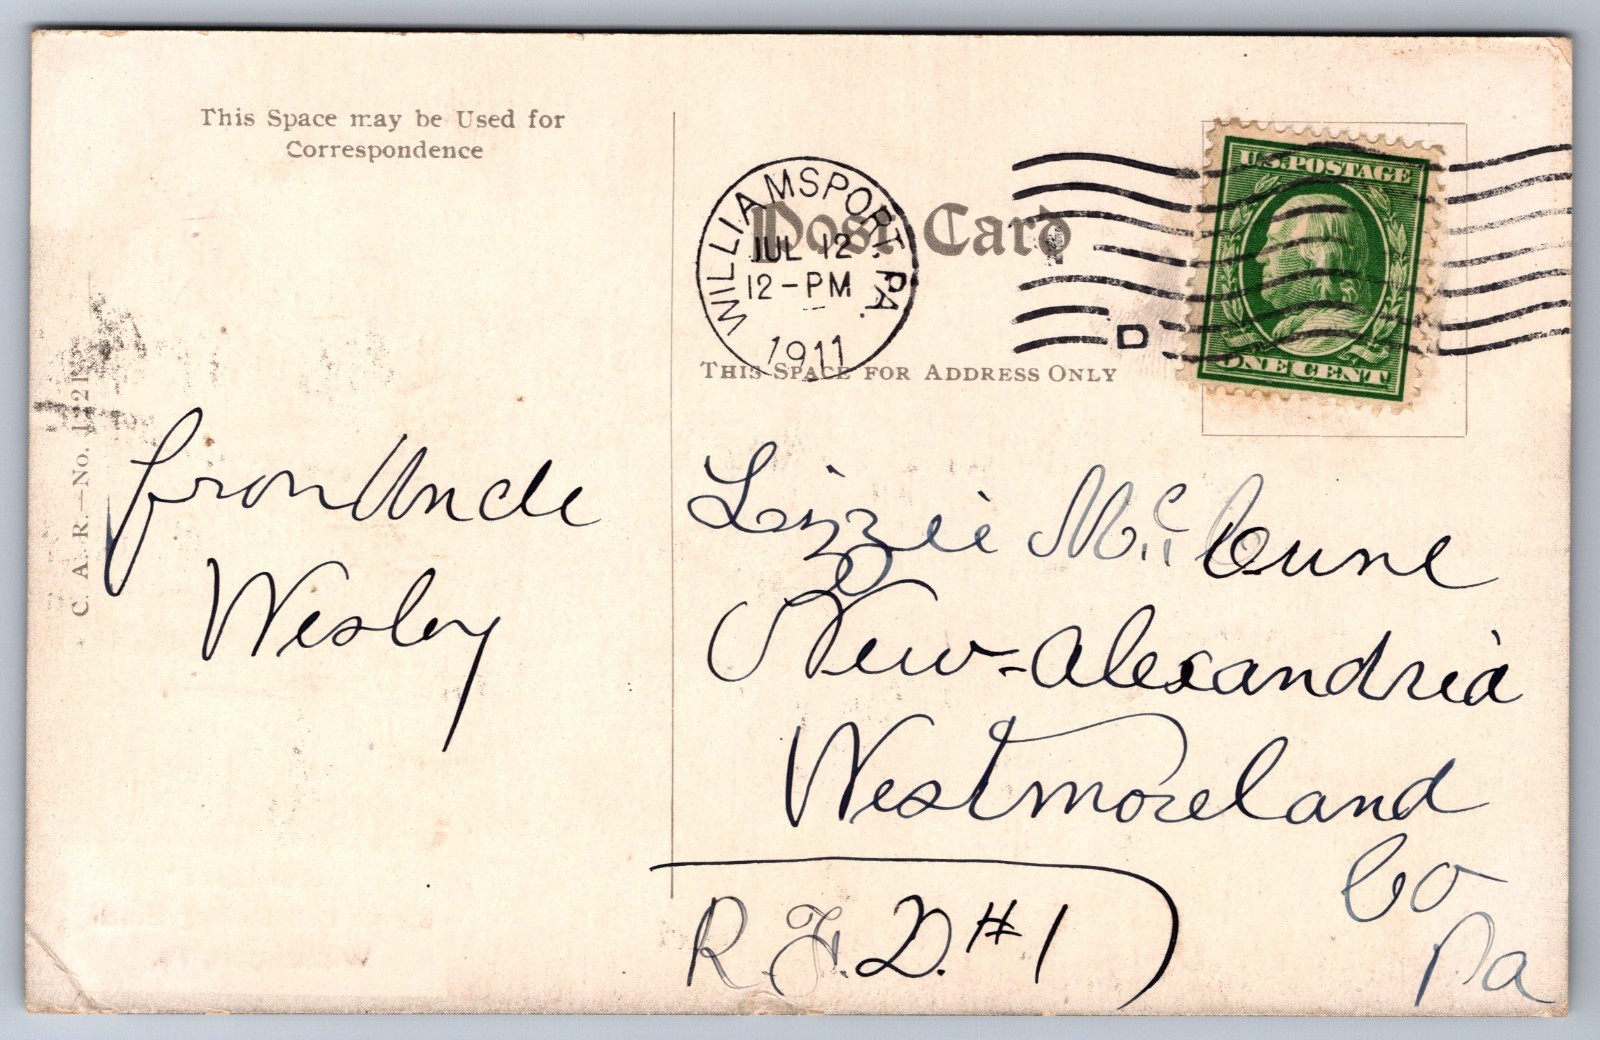 This Space may be Used for
Correspondence
C. A. R.—No. 1221
from Uncle
Wesley
Post Card
WILLIAMSPORT, PA.
JUL 12
12-PM
1911
D
U.S. POSTAGE
ONE CENT
THIS SPACE FOR ADDRESS ONLY
Lizzie McCune
New-Alexandria
Westmoreland
Co
Pa
R.F.D. #1